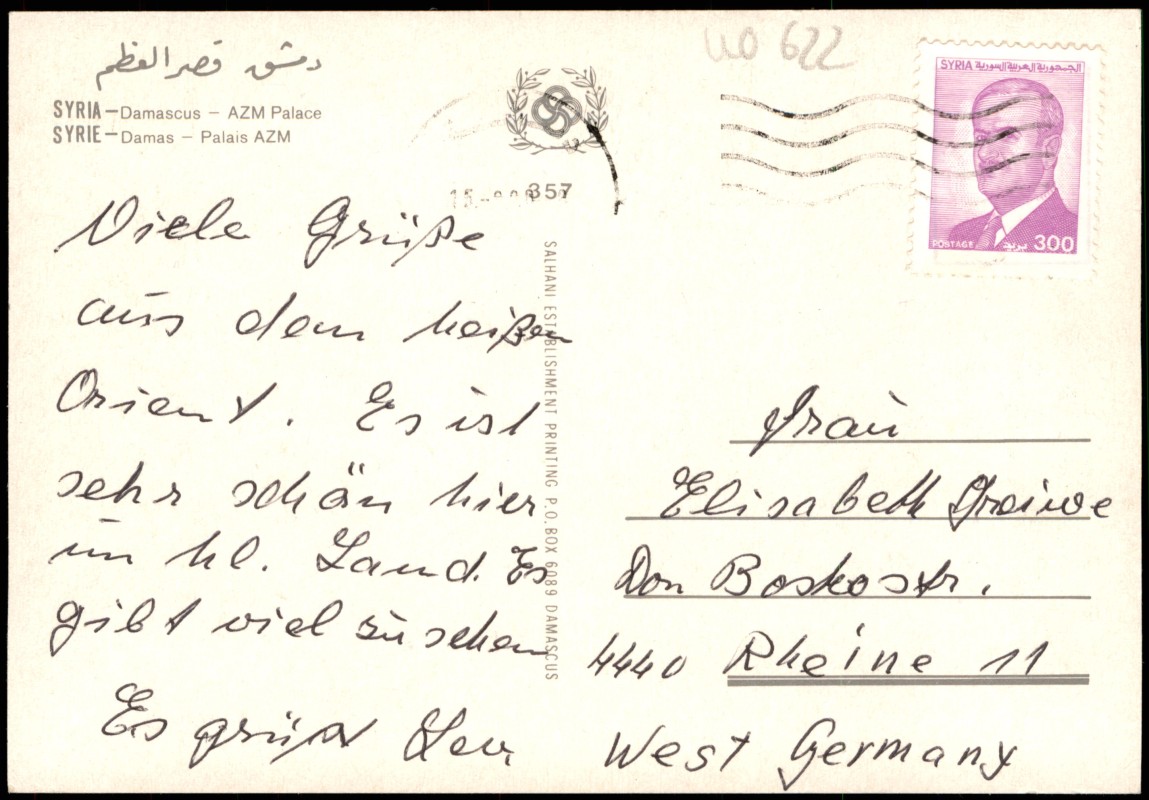 دمشق قصر العظم
SYRIA – Damascus – AZM Palace
SYRIE – Damas – Palais AZM
357
SALHANI ESTABLISHMENT PRINTING P.O.BOX 6089 DAMASCUS
622
SYRIA الجمهورية العربية السورية
POSTAGE بريد 300
Viele Grüße
aus dem heißen
Orient. Es ist
sehr schön hier
im hl. Land. Es
gibt viel zu sehen
Es grüßt
Frau
Elisabeth Greiwe
Don Boskostr.
4440 Rheine 11
West Germany